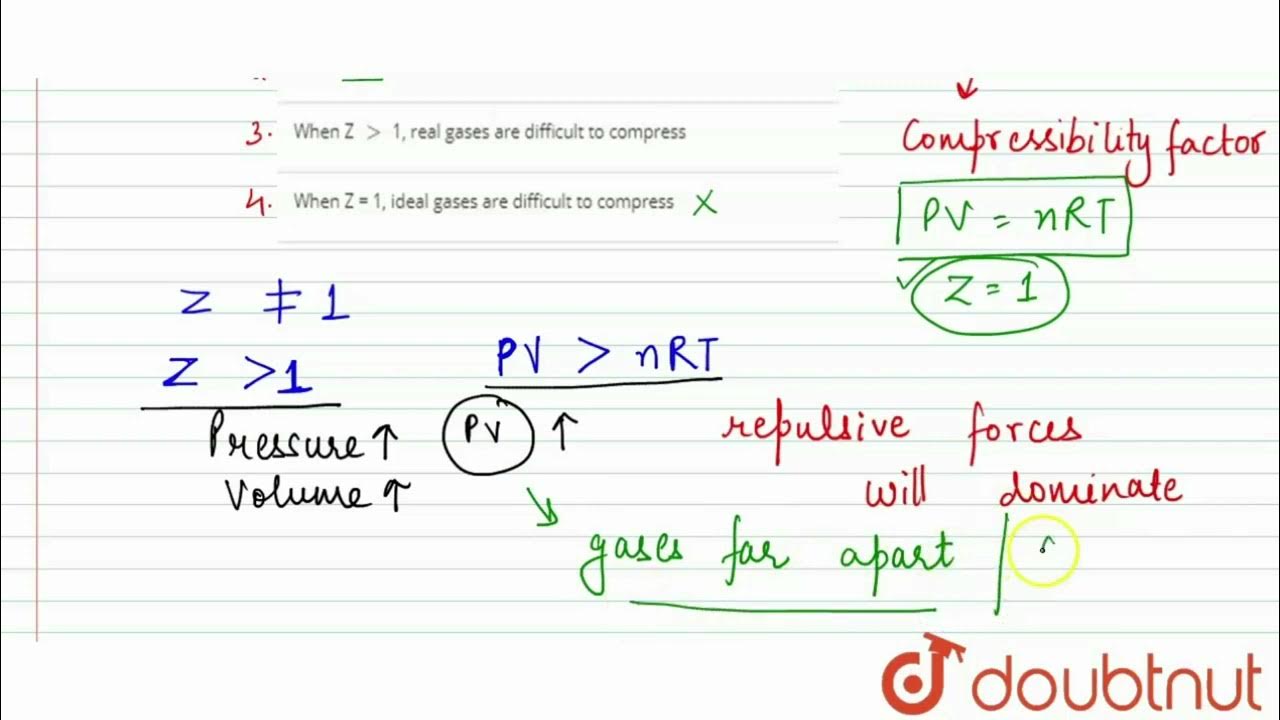 3. When Z > 1, real gases are difficult to compress
Compressibility factor
4. When Z = 1, ideal gases are difficult to compress X
PV = nRT
Z = 1
Z ≠ 1
Z > 1
PV > nRT
Pressure ↑
PV ↑
repulsive forces
Volume ↑
will dominate
gases far apart
doubtnut